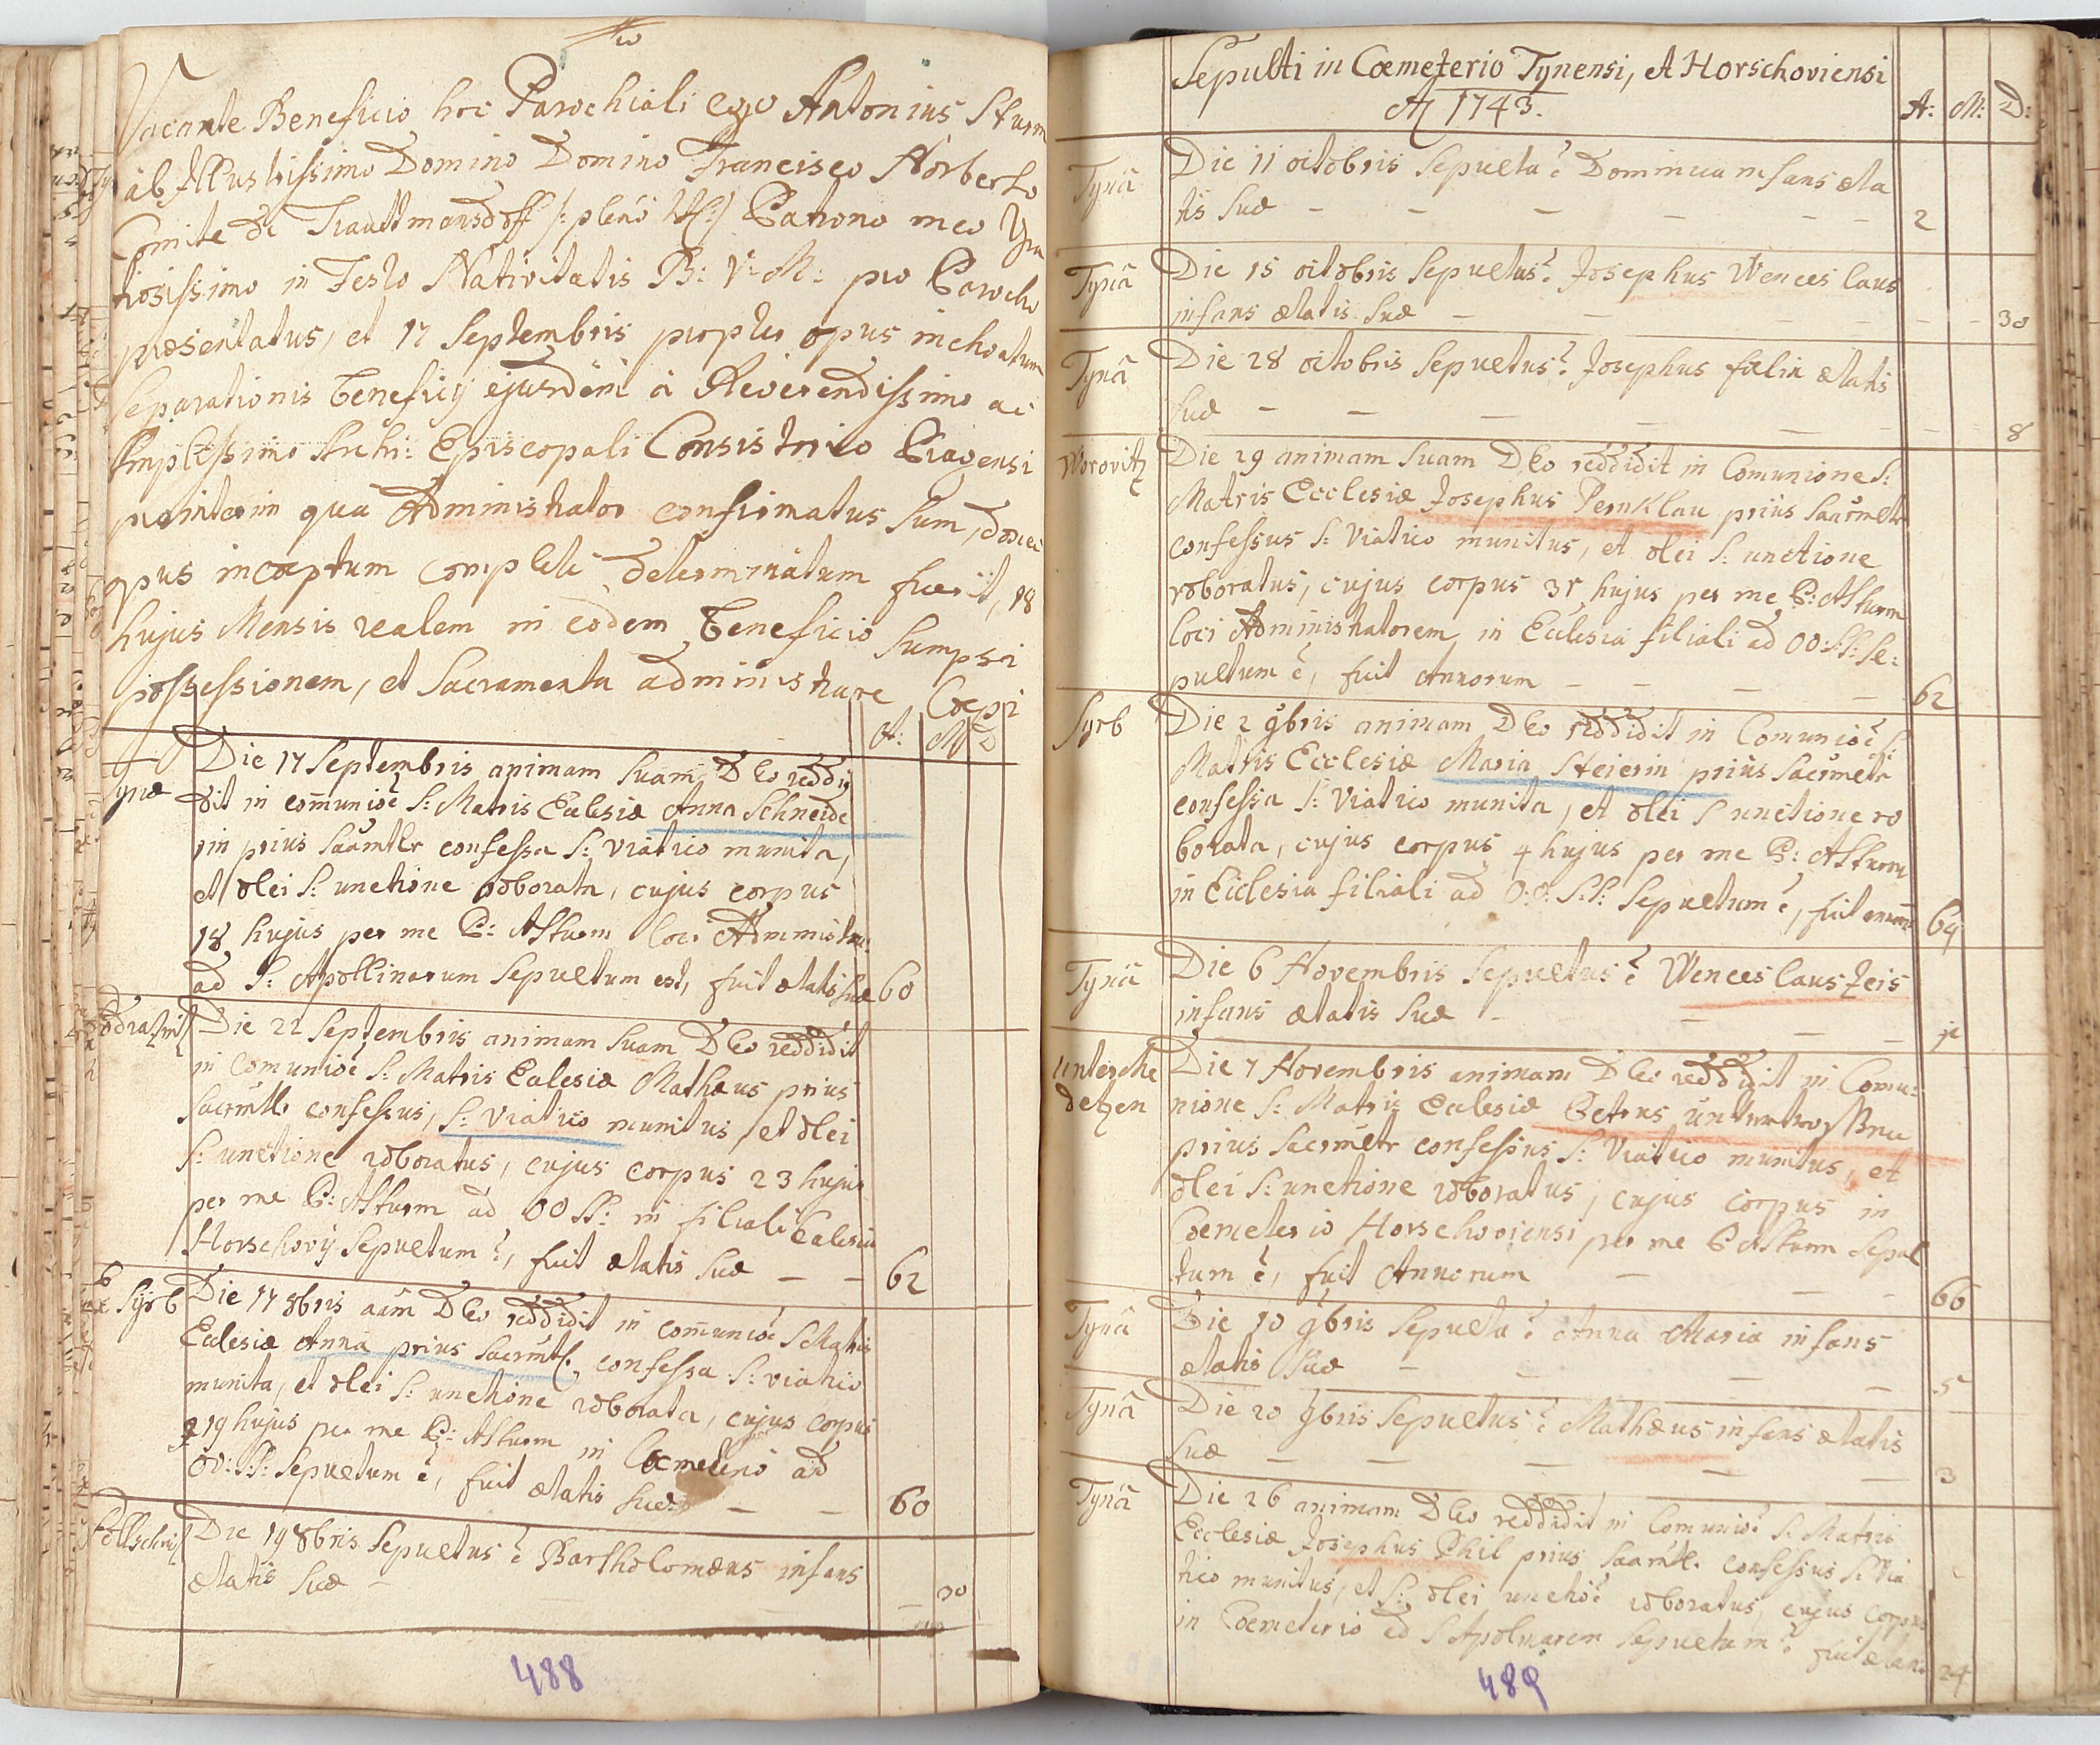 Vacante Beneficio hoc Parochiali ego Antonius Sturm
ab Illustrissimo Domino Domino Francisco Norberto
Comite de Trauttmansdorff /: pleno tit: / Patrono meo Gra
tiosissimo in Festo Nativitatis B: V: M: pro Parocho
præsentatus, et 17 Septembris propter opus inchoatum
separationis beneficij ejusdem à Reverendissimo ac
Amplissimo Archi: Episcopali Consistorio Pragensi
pro interim quà Administrator confirmatus sum, donec
opus incæptum complete determinatum fuerit, 18
hujus Mensis realem in eodem Beneficio sumpsi
possessionem, et Sacramenta administrare Cœpi
A: M D
Tynæ
Die 17 Septembris animam suam Deo reddi
dit in comunioe S: Matris Ecclesiæ Anna Schneide
rin prius Saāmtlr confessa S: viatico munita,
et olei S: unctione roborata, cujus corpus
18 hujus per me P: ASturm loci Administra:
ad S: Apollinarum Sepultum est, fuit ætatis suæ 60
Die 22 Septembris animam suam Deo reddidit
in Comunioe S: Matris Ecclesiæ Mathæus prius
Sacrmtlr confessus, S: Viatico munitus, et olei
S: unctione roboratus, cujus corpus 23 hujus
per me P: ASturm ad OO SS: in filiali Ecclesia
Horschovij Sepultum ē, fuit ætatis suæ — — 62
Syrb
Die 17 8bris aām Deo reddidit in comunioe S Matris
Ecclesiæ Anna prius Sacrmtl. confessa S: viatico
munita, et olei S: unctione roborata, cujus corpus
19 hujus per me P: ASturm in Cœmeterio ad
OO: SS: Sepultum ē, fuit ætatis suæ — — 60
Die 19 8bris Sepultus ē Bartholomæus infans
ætatis suæ — — 30
488
Sepulti in Cœmeterio Tynensi, et Horschoviensi
A 1743.
A: M: D:
Tynā
Die 11 octobris Sepulta ē Dominica infans æta
tis suæ — — — — — 2
Tynā
Die 15 octobris Sepultus ē Josephus Wenceslaus
infans ætatis suæ — — — — 30
Tynā
Die 28 octobris Sepultus ē Josephus fœlix ætatis
suæ — — — — 8
Worovitz
Die 29 animam suam Deo reddidit in Comunione S:
Matris Ecclesiæ Josephus Pernklau prius Saārmetr
confessus S: Viatico munitus, et olei S: unctione
roboratus, cujus corpus 31 hujus per me P: ASturm
loci Administratorem in Ecclesia filiali ad OO: SS: Se:
pultum ē, fuit Annorum — — — — 62
Syrb
Die 2 9bris animam Deo reddidit in Comunioē S:
Matris Ecclesiæ Maria Steierin prius Sacrmetr
confessa S: Viatico munita, et olei S unctione ro
borata, cujus corpus 4 hujus per me P: ASturm
in Ecclesia filiali ad O:O: S:S: Sepultum ē, fuit annorū 69
Tynā
Die 6 Novembris Sepultus ē Wenceslaus Zeis
infans ætatis suæ — — — —
Untermedetzen
Die 7 Novembris animam Deo reddidit in Comu:
nione S: Matris Ecclesiæ Petrus
prius Sacrmetr confessus S: Viatico munitus, et
olei S: unctione roboratus, cujus corpus in
Cœmeterio Horschoviensi per me P ASturm Sepul
tum ē, fuit Annorum — — — 66
Tynā
Die 10 9bris Sepulta ē Anna Maria infans
ætatis suæ — — — — 5
Tynā
Die 20 9bris Sepultus ē Mathæus infans ætatis
suæ — — — — 3
Tynā
Die 26 animam Deo reddidit in Comunioē S: Matris
Ecclesiæ Josephus Phil prius Saarmtl. confessus S: Via
tico munitus, et S: olei unctioē roboratus, cujus corpus
in Cœmeterio ad S Apolinarem Sepultum ē fuit ætatis 24
489